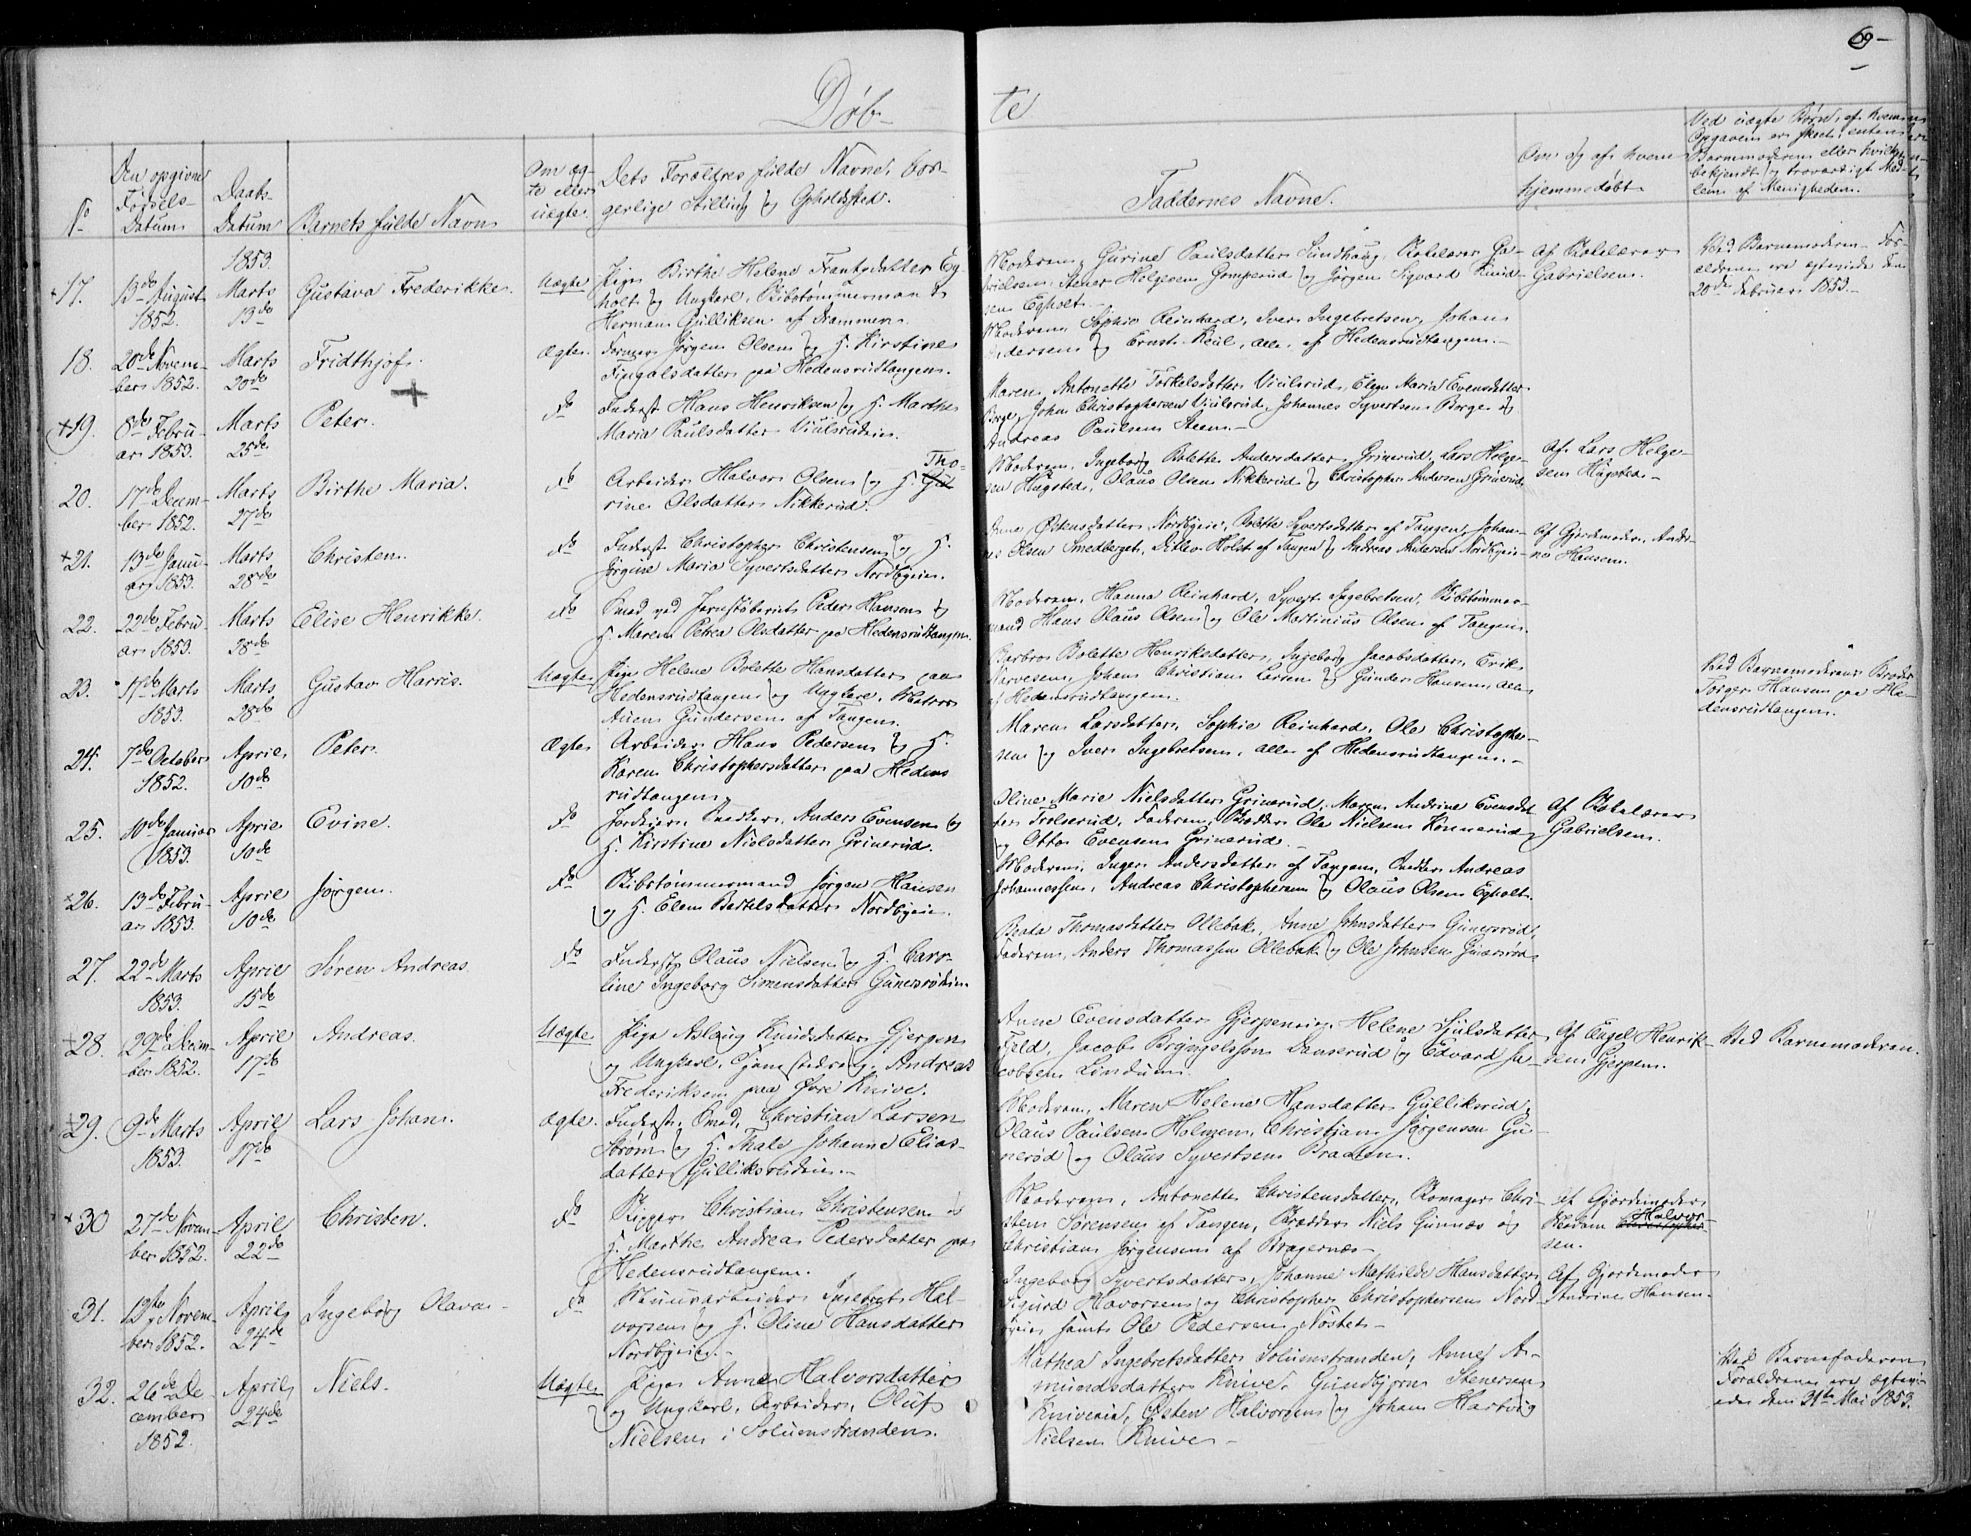 69-
Døb-
te
No
Den opgivne
Fødsels-
Datum
Daabs-
Datum
Barnets fulde Navn
Om æg-
te eller
uægte.
Dets Forældres fulde Navne, bor-
gerlige Stilling og Opholdssted.
Faddernes Navne.
Om og af hvem
hjemmedøbt
Ved uægte Børn, af hvem
Opgaven er skeet, enten
Barnmoderen eller hvilket
bekjendt og troværdigt Med-
lem af Menigheden.
17.
13de August
1852.
1853.
Marts
13de
Gustava Frederikke.
Uægte
Pige Birthe Helene Frantsdatter Eg-
holt og Ungkarl, Skibstømmermand
Herman Gulliksen af Drammen.
Moderen, Gurine Paulsdatter Sundhaug, Skolelærer Ga-
brielsen, Stener Helgesen Gomperud og Jørgen Sigvard Knud-
sen Egholt.
Af Skolelærer
Gabrielsen.
Ved Barnemoderen. For-
ældrene ere ægteviede den
20de Februar 1853.
18.
20de Novem-
ber 1852.
Marts
20de
Fridthjof.
Ægte.
Former Jørgen Olsen og H. Kirstine
Fingalsdatter paa Hedensrudtangen.
Moderen, Sophie Reinhard, Iver Ingebretsen, Johan
Pedersen og Ernst Keül, alle af Hedensrudtangen.
19.
8de Febru-
ar 1853.
Marts
25de
Peter.
do
Inderst Hans Henriksen og H. Marthe
Maria Paulsdatter Viulsrudeie.
Maren Antonette Torkelsdatter Viulsrud, Elen Maria Evensdatter
Borge, John Christophersen Viulsrud, Johannes Syvertsen Borge og
Andreas Paulsen Steen.
20.
17de Decem-
ber 1852.
Marts
27de
Birthe Maria.
do
Arbeider Halvor Olsen og H. Tho-
rine Olsdatter Nikkerud.
Moderen, Ingeborg Bolette Andersdatter Grinerud, Lars Helge-
sen Hugsted, Olaus Olsen Nikkerud og Christopher Andersen Grinerud.
Af Lars Helge-
sen Hugsted.
21.
13de Janu-
ar 1853.
Marts
28de
Christen.
do
Inderst Christopher Christensen og H.
Jørgine Maria Syvertsdatter Nordbyeie.
Anne Østensdatter Nordbyeie, Bolette Syvertsdatter af Tangen, Johan-
nes Olsen Smedberget, Ditlev Holst af Tangen og Andreas Andersen Nordbyeie
Af Gjordemoder Andri-
ne Hansen.
22.
22de Febru-
ar 1853.
Marts
28de
Elise Henrikke.
do
Smed ved Jernstøberiet Peder Hansen og
H. Maren Petrea Olsdatter paa Hedensrudtangen.
Moderen, Hanna Reinhard, Syvert Ingebretsen, Skibstømmer-
mand Hans Olaus Olsen og Ole Martinius Olsen af Tangen.
23.
17de Marts
1853.
Marts
28de
Gustav Harris.
Uægte
Pige Helene Bolette Hansdatter paa
Hedensrudtangen og Ungkarl, Matros
Anen Gundersen af Tangen.
Barbro Bolette Henriksdatter, Ingeborg Jacobsdatter, Erik
Sørvesen, Johan Christian Larsen og Gunder Hansen, alle
af Hedensrudtangen.
Ved Barnemoderens Broder
Torger Hansen paa He-
densrudtangen.
24.
7de October
1852.
April
10de
Peter.
Ægte
Arbeider Hans Pedersen og H.
Karen Christophersdatter paa Hedens-
rudtangen.
Maren Larsdatter, Sophie Reinhard, Ole Christopher-
sen og Iver Ingebretsen, alle af Hedensrudtangen.
25.
10de Januar
1853.
April
10de
Evine.
do
Jordeier, Snedker, Anders Evensen og
H. Kirstine Nielsdatter Grinerud.
Oline Marie Nielsdatter Grinerud, Maren Andrine Evensdat-
ter Trolserud, Faderen, Skrædder Ole Nielsen Konnerud
og Otto Evensen Grinerud.
Af Skolelærer
Gabrielsen.
26.
13de Febru-
ar 1853.
April
10de
Jørgen.
do
Skibstømmermand Jørgen Hansen
og H. Elen Bertilsdatter Nordbyeie.
Moderen, Inger Andersdatter af Tangen, Snedker Andreas
Johannessen, Andreas Christophersen og Olaus Olsen Egholt.
27.
22de Marts
1853.
April
15de
Søren Andreas.
do
Inderst Olaus Nielsen og H. Caro-
line Ingeborg Simensdatter Gunerødeie.
Beate Thomasdatter Ollebak, Anne Johnsdatter Gunerød,
Faderen, Anders Thomassen Ollebak og Ole Johnsen Gunerød
28.
29de Decem-
ber 1852.
April
17de
Andreas.
Uægte.
Pige Aslaug Knudsdatter Gjerpen
og Ungkarl, Tjenestedreng, Andreas
Frederiksen paa Øvre Knive.
Anne Evensdatter Gjerpeneie, Helene Hjulsdatter
Fjeld, Jacob Bryngelssen Danserud og Edvard Ja-
cobsen Lindum.
Af Engel Henrik-
sen Gjerpen.
Ved Barnemoderen.
29.
9de Marts
1853.
April
17de
Lars Johan.
Ægte.
Inderst, Smed, Christian Larsen
Strøm og H. Thale Johanne Elias-
datter Gulliksrudeie.
Moderen, Maren Helene Hansdatter Gulliksrud,
Olaus Paulsen Holmen, Christian Jørgensen Gu-
nerød og Olaus Syvertsen Braaten.
30
27de Novem-
ber 1852.
April
22de
Christen.
do
Rigger Christian Christensen og
H. Marthe Andrea Pedersdatter paa
Hedensrudtangen.
Moderen, Antonette Christensdatter, Skomager Chri-
sten Sørensen af Tangen, Skrædder Niels Gunnæs og
Christian Jørgensen af Bragernæs.
Af Gjordemoder
Madam Halvor-
sen.
31.
12te Novem-
ber 1852.
April
24de
Ingeborg Olava.
do
Muurarbeider Ingebret Hal-
vorsen og H. Oline Hansdatter
Nordbyeie.
Ingeborg Syvertsdatter, Johanne Mathilde Hansdatter,
Sigurd Havorsen og Christopher Christophersen Nord-
byeie samt Ole Pedersen Nøstet.
Af Gjordemoder
Andrine Hansen.
32.
26de De-
cember
1852.
April
24de
Niels.
Uægte
Pige Anne Halvorsdatter
og Ungkarl, Arbeider, Oluf
Nielsen i Solumstranden.
Mathea Ingebretsdatter Solumstranden, Anne A-
mundsdatter Knive, Gundbjørn Stenersen
Kniveeie, Østen Halvorsen og Johan Hartvig
Nielsen Knive.
Ved Barnefaderen
Forældrene ere ægtevi-
ede den 31te Mai 1853.